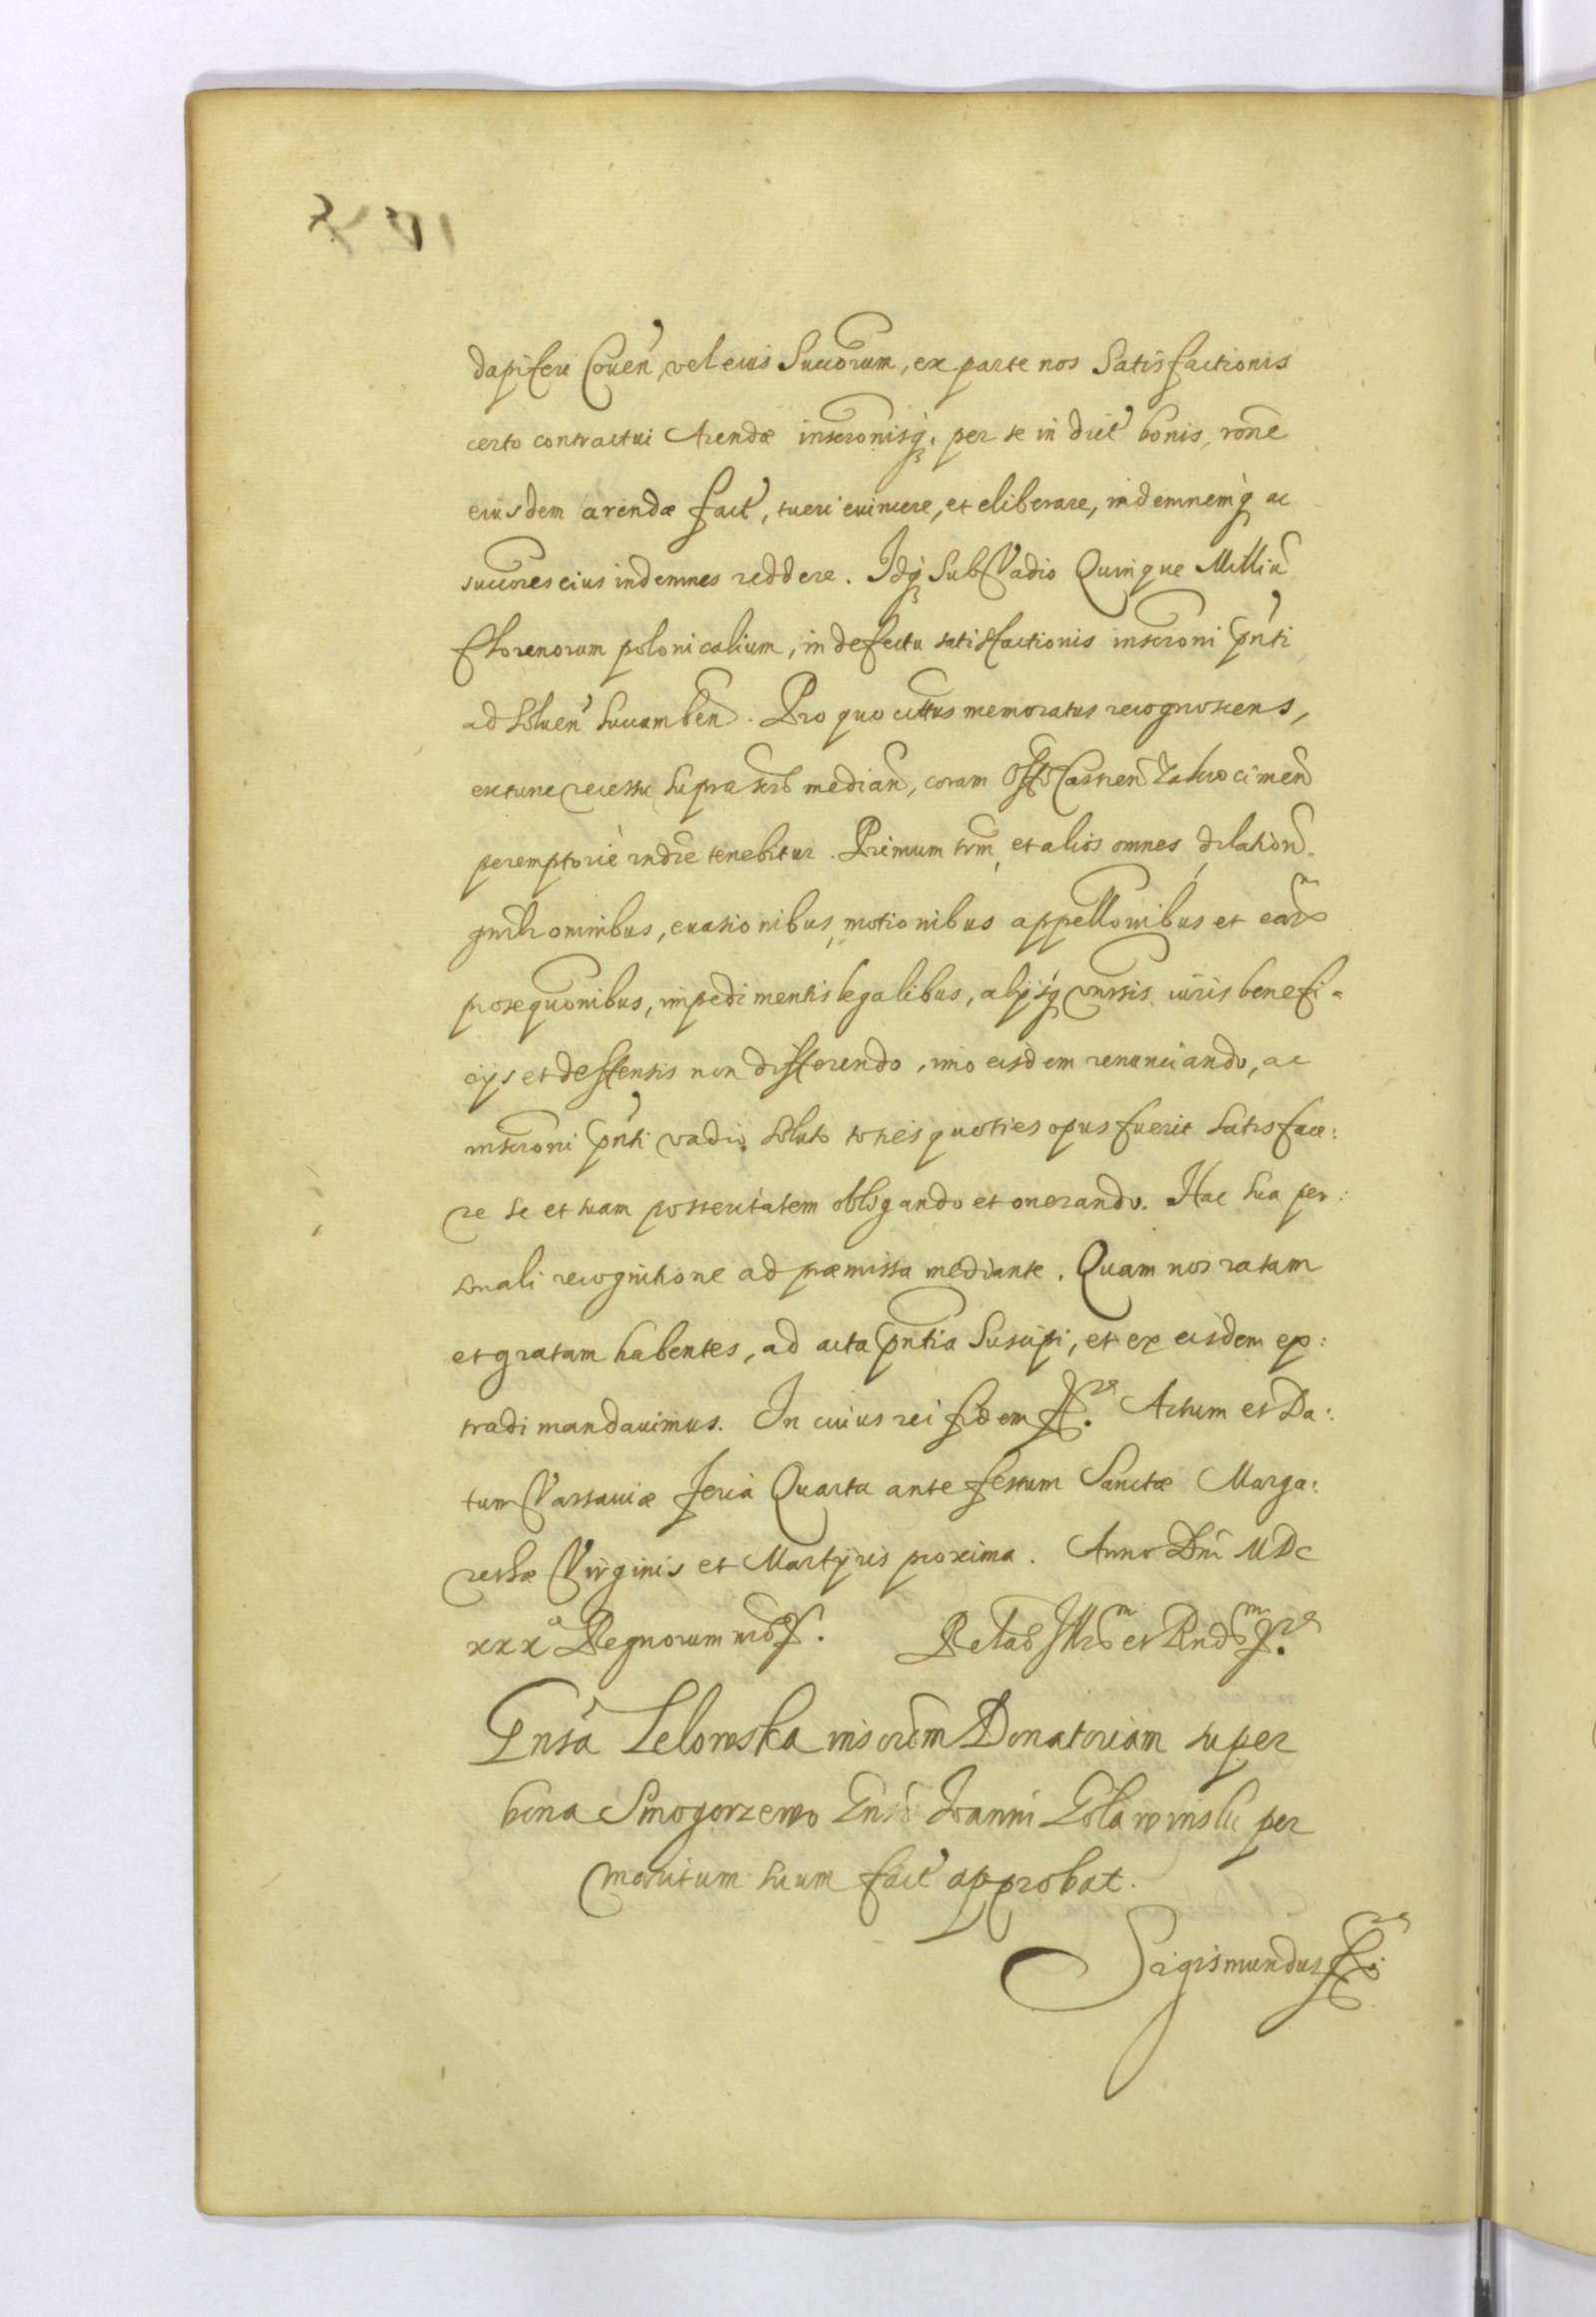 dapiferi Coveń, vel eius Succorum, ex parte nos Satisfactionis
certo contractui Arendæ inscronisq; per se in dict bonis, rone
eiusdem arendæ fact, tueri evincere, et eliberare, indemnemq ac
succores eius indemnes reddere. Idq; Sub Vadio Quinque Milliu
florenorum polonicalium, in defectu satisfactionis inscroni pnti
ad solven succumben. Pro quo citatus memoratus recognoscens,
extunc recessu suprascro median, coram Offo Castren Zakrocimen
peremptorie rndre tenebitur. Primum trm, et alios omnes dilation
omnibus, evasionibus, motionibus appellonibus et eard
prosequonibus, impedimentis legalibus, alijsq vnvsis iuris benefi-
cijs et deffensis non differendo, imo eisdem renunciando, ac
inscroni pnti vadio soluto toties quoties opus fuerit satisface:
re se et suam posteritatem obligando et onerando. Hac sua per:
sonali recognitione ad præmissa mediante. Quam nos ratam
et gratam habentes, ad acta pntia Suscipi, et ex eisdem ex:
tradi mandavimus. In cuius rei fidem &c. Actum et Da:
tum Varsaviæ feria Quarta ante festum Sanctæ Marga:
rethæ Virginis et Martyris proxima. Anno Dni MDC
xxxo Regnorum nro &. Relao Illrm et Rndm &c.
Gnsa Lelowska inscrom Donatoriam super
bona Smogorzewo Gnso Ioanni Golawinski per
maritum suum fact approbat.
Sigismundus &c